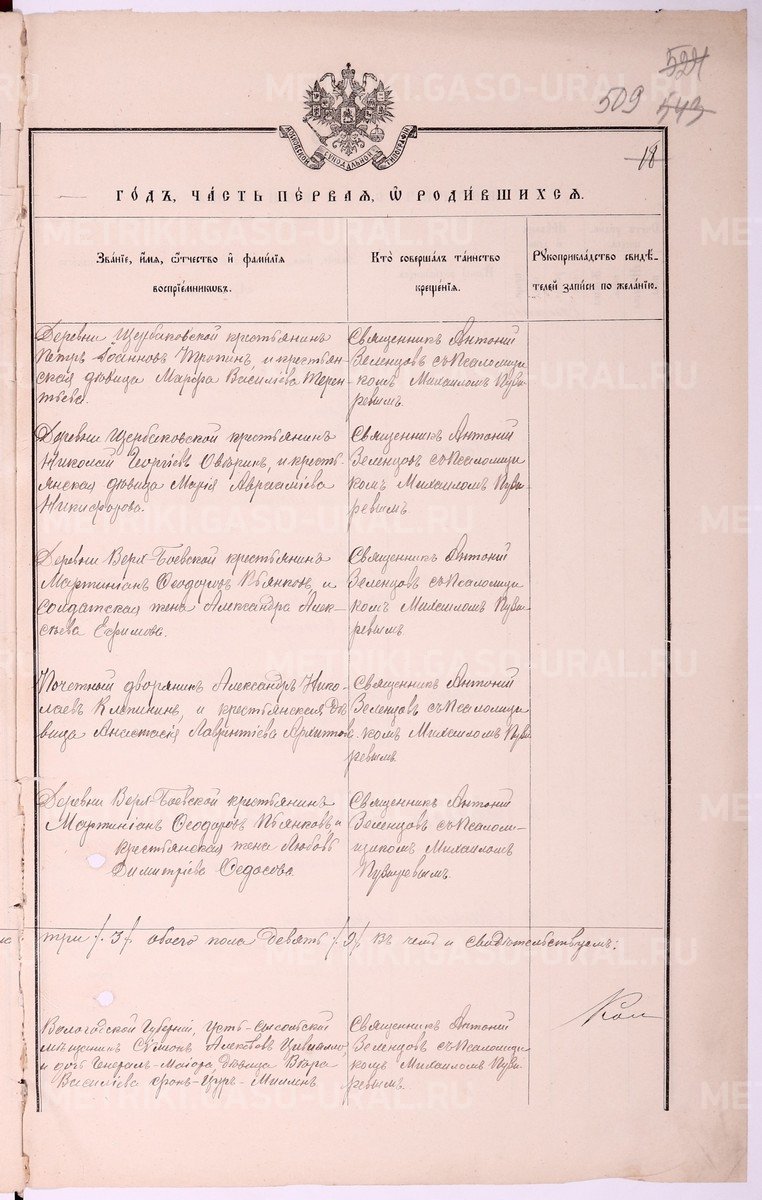 524
509 543
МОСКОВСКОЙ СУНОДАЛЬНОЙ ТИПОГРАФІИ
18
ГОДЪ, ЧАСТЬ ПЕРВАЯ, Ѽ РОДИВШИХСЯ.
Званіе, имя, ѻтчество и фамилія
воспріемниковъ.
Кто совершалъ таинство
крещенія.
Рукоприкладство свидѣ-
телей записи по желанію.
Деревни Щербаковской крестьянинъ
Петръ Іоанновъ Тропинъ, и крестьян-
ская дѣвица Марѳа Василіева Терен-
тьева.
Священникъ Антоній
Зеленцовъ съ Псаломщи-
комъ Михаиломъ
Деревни Щербаковской крестьянинъ
Николай Георгіевъ Овѣринъ, и кресть-
янская дѣвица Марія Авраамiева
Никифорова.
Священникъ Антоній
Зеленцовъ съ Псаломщи-
комъ Михаиломъ
Деревни Верх-Боевской крестьянинъ
Мартиніанъ Ѳеодоровъ Пьянковъ, и
солдатская жена Александра Алек-
сѣева Ефимова.
Священникъ Антоній
Зеленцовъ съ Псаломщи-
комъ Михаиломъ
Почетный дворянинъ Александръ Нико-
лаевъ Клепининъ, и крестьянская дѣ-
вица Анастасія Лаврентіева
Священникъ Антоній
Зеленцовъ съ Псаломщи-
комъ Михаиломъ
Деревни Верх-Боевской крестьянинъ
Мартиніанъ Ѳеодоровъ Пьянковъ, и
крестьянская жена Любовь
Димитріева Ѳедосова.
Священникъ Антоній
Зеленцовъ съ Псалом-
щикомъ Михаиломъ
три /. 3 /. обоего пола девять /. 9 /. въ чемъ и свидѣтельствуемъ:
Вологодской Губерніи, Усть-Сысольскій
мѣщанинъ Сѷмеонъ
и дочь Генералъ-Маіора дѣвица Вѣра
Василіева фонъ-Цуръ-Милленъ
Священникъ Антоній
Зеленцовъ съ Псаломщи-
комъ Михаиломъ
METRIKI.GASO-URAL.RU